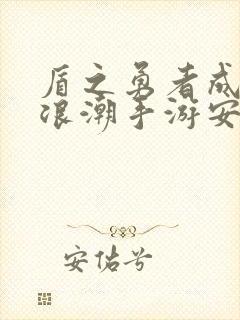 盾之勇者成
浪潮手游安
安估号